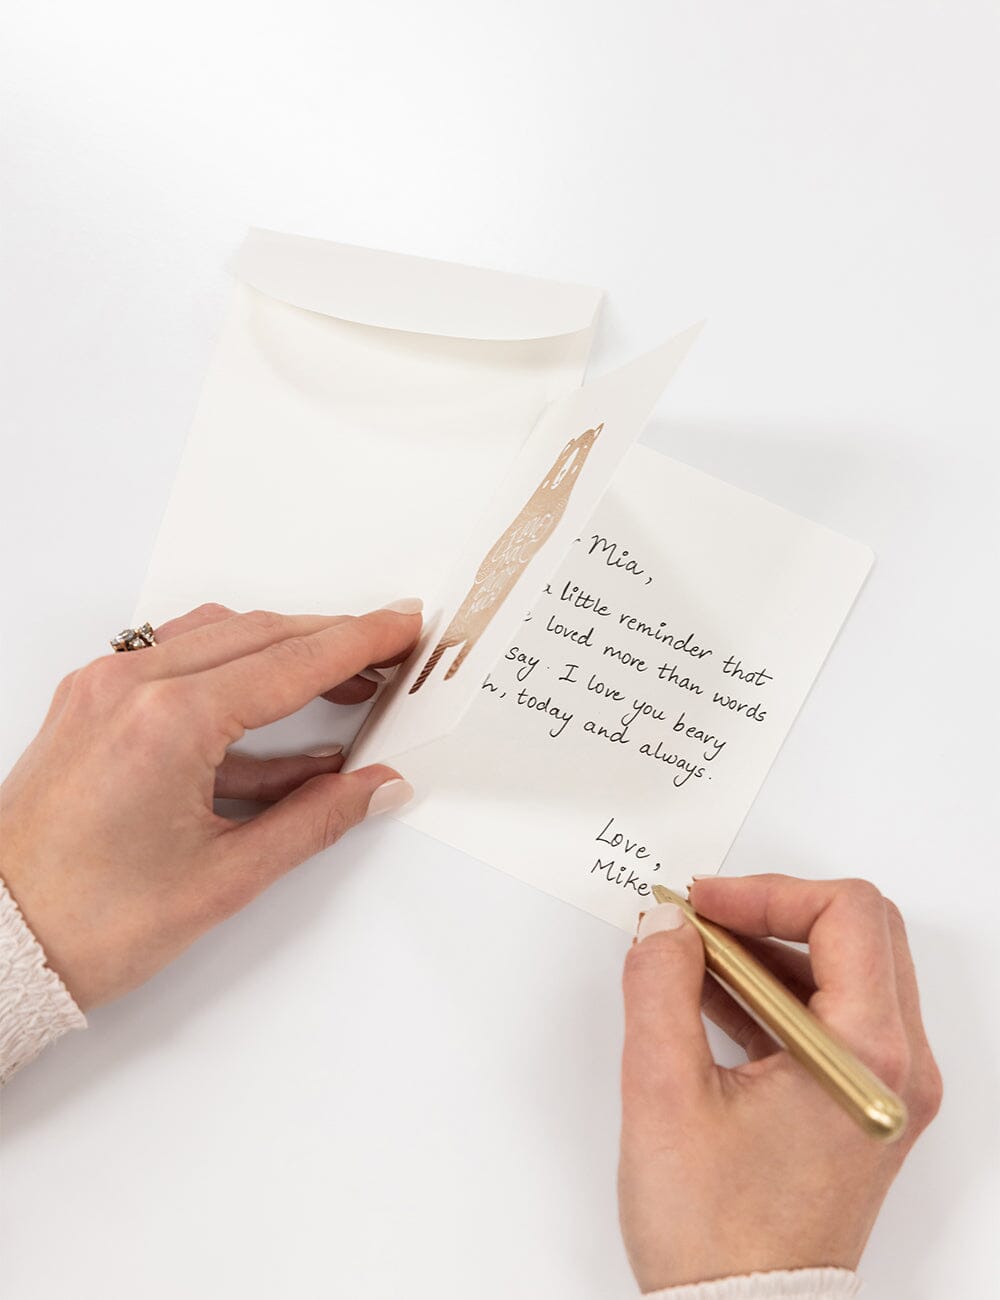 Mia,
a little reminder that
loved more than words
say. I love you beary
h, today and always.
Love,
Mike